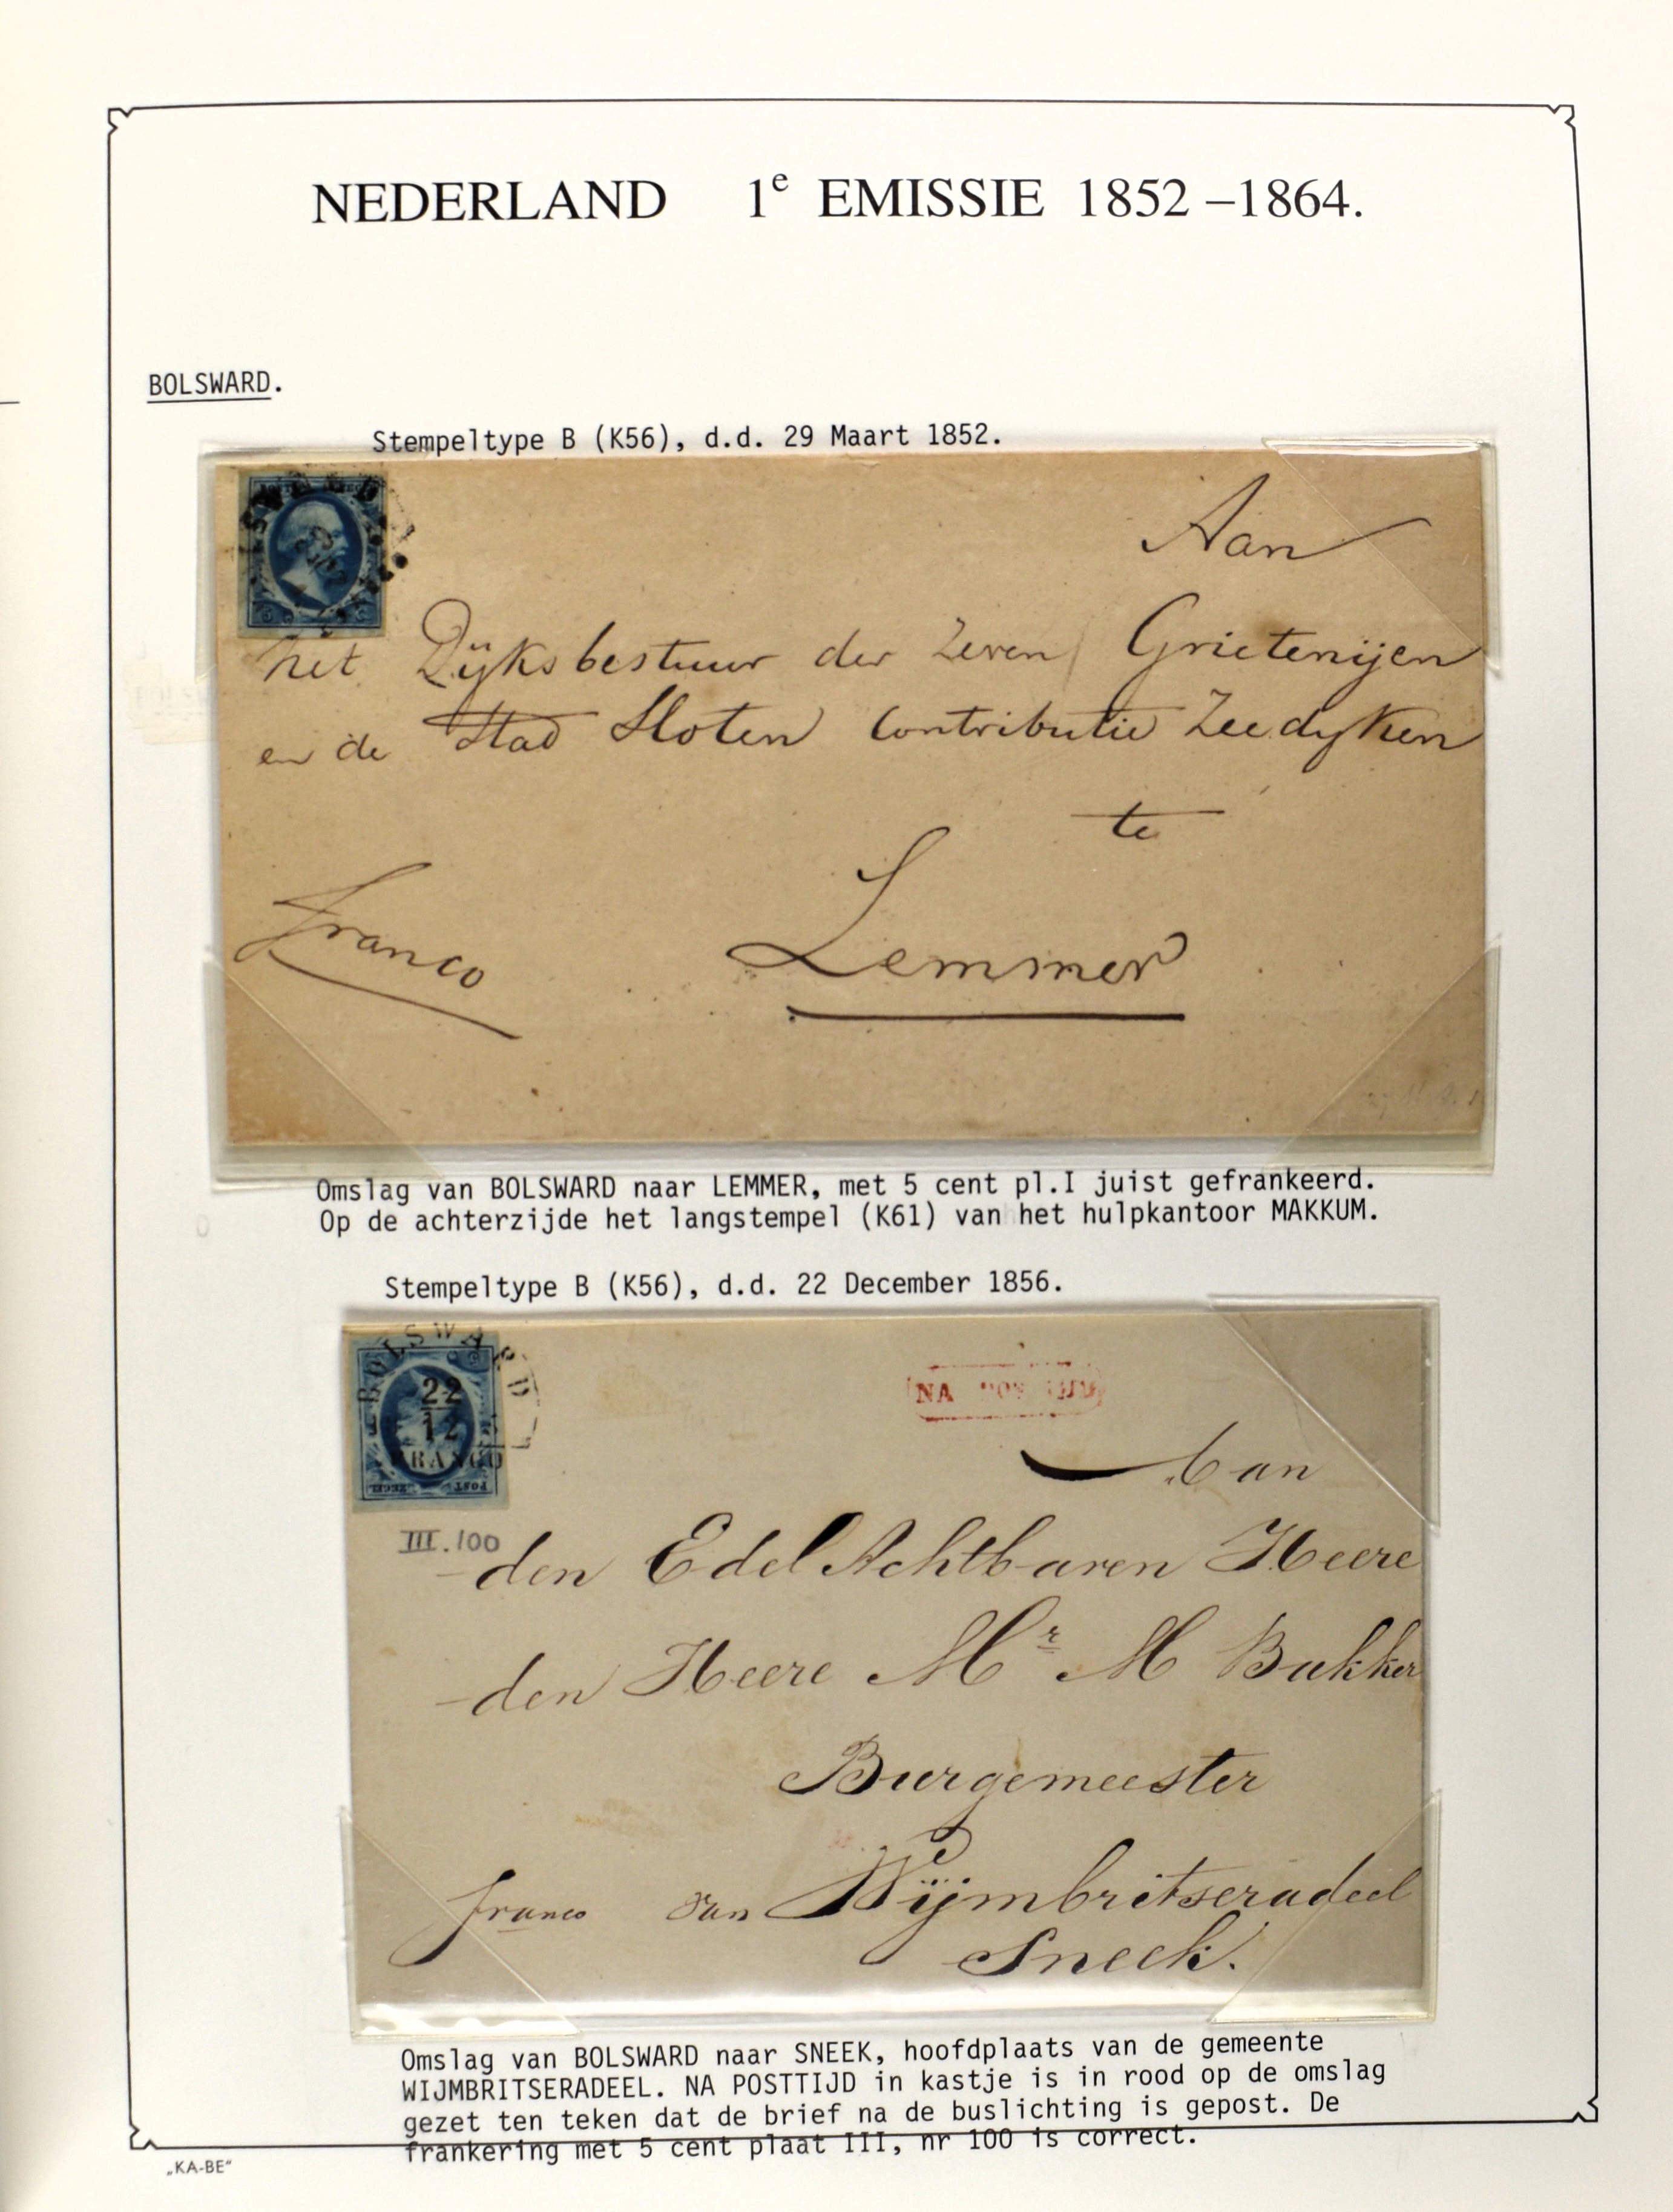 NEDERLAND 1e EMISSIE 1852–1864.
BOLSWARD.
Stempeltype B (K56), d.d. 29 Maart 1852.
Aan
het Dijksbestuur der Zeven Grietenijen
en de Stad Sloten Contributie Zeedyken
te
Franco Lemmer
Omslag van BOLSWARD naar LEMMER, met 5 cent pl.I juist gefrankeerd.
Op de achterzijde het langstempel (K61) van het hulpkantoor MAKKUM.
Stempeltype B (K56), d.d. 22 December 1856.
BOLSWARD
22
12
FRANCO
POST
NA
Aan
III.100
den Edel Achtbaren Heere
den Heere Mr M Bakker
Burgemeester
franco van Wijmbritseradeel
Sneek.
Omslag van BOLSWARD naar SNEEK, hoofdplaats van de gemeente
WIJMBRITSERADEEL. NA POSTTIJD in kastje is in rood op de omslag
gezet ten teken dat de brief na de buslichting is gepost. De
frankering met 5 cent plaat III, nr 100 is correct.
„KA-BE"